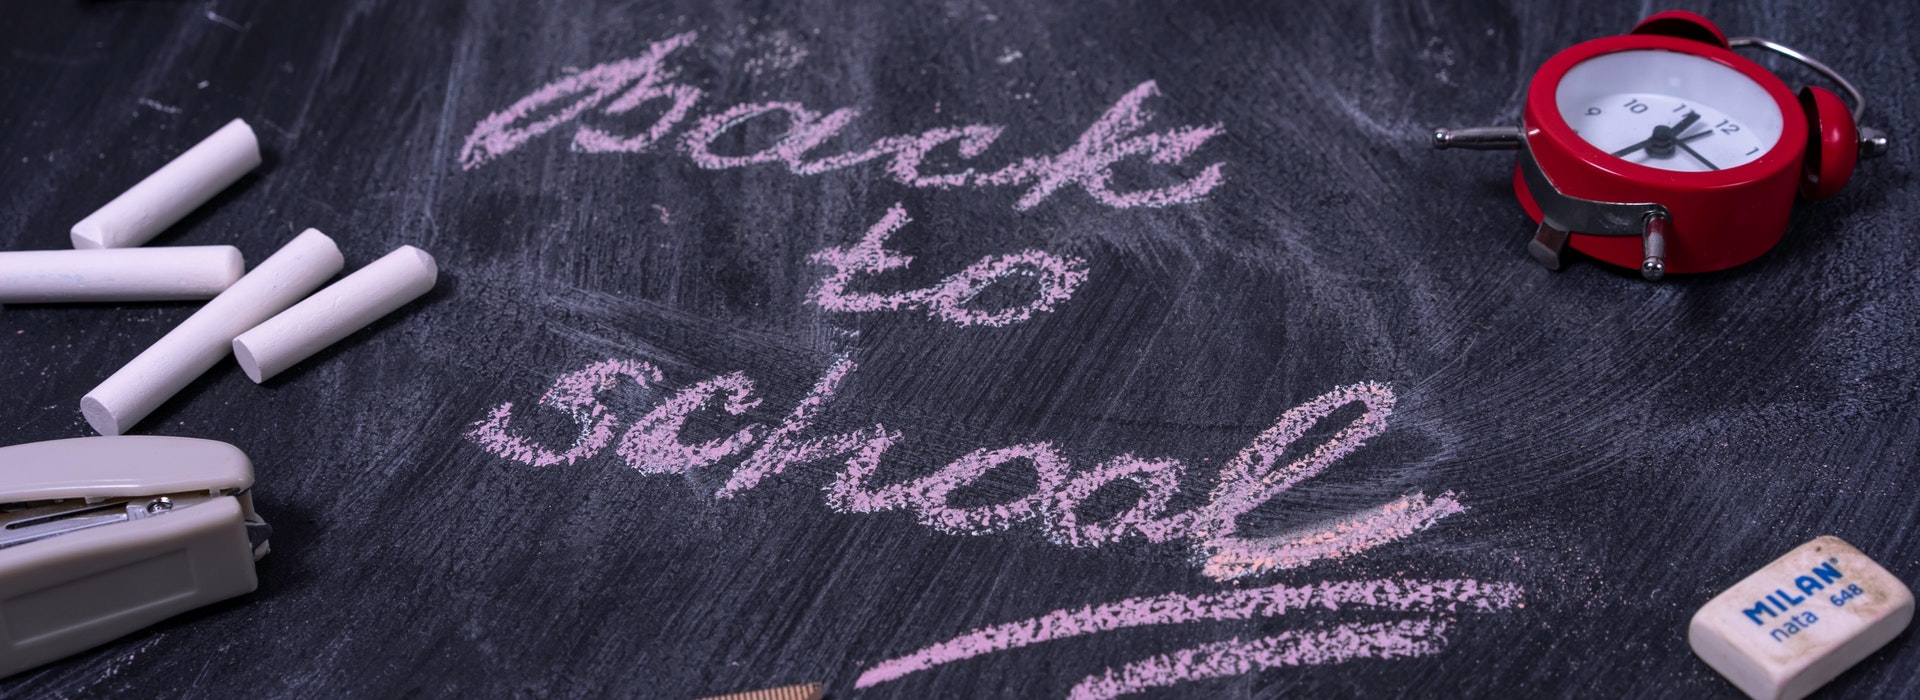 back
to
school
9 10 11 12 1
MILAN®
nata 648